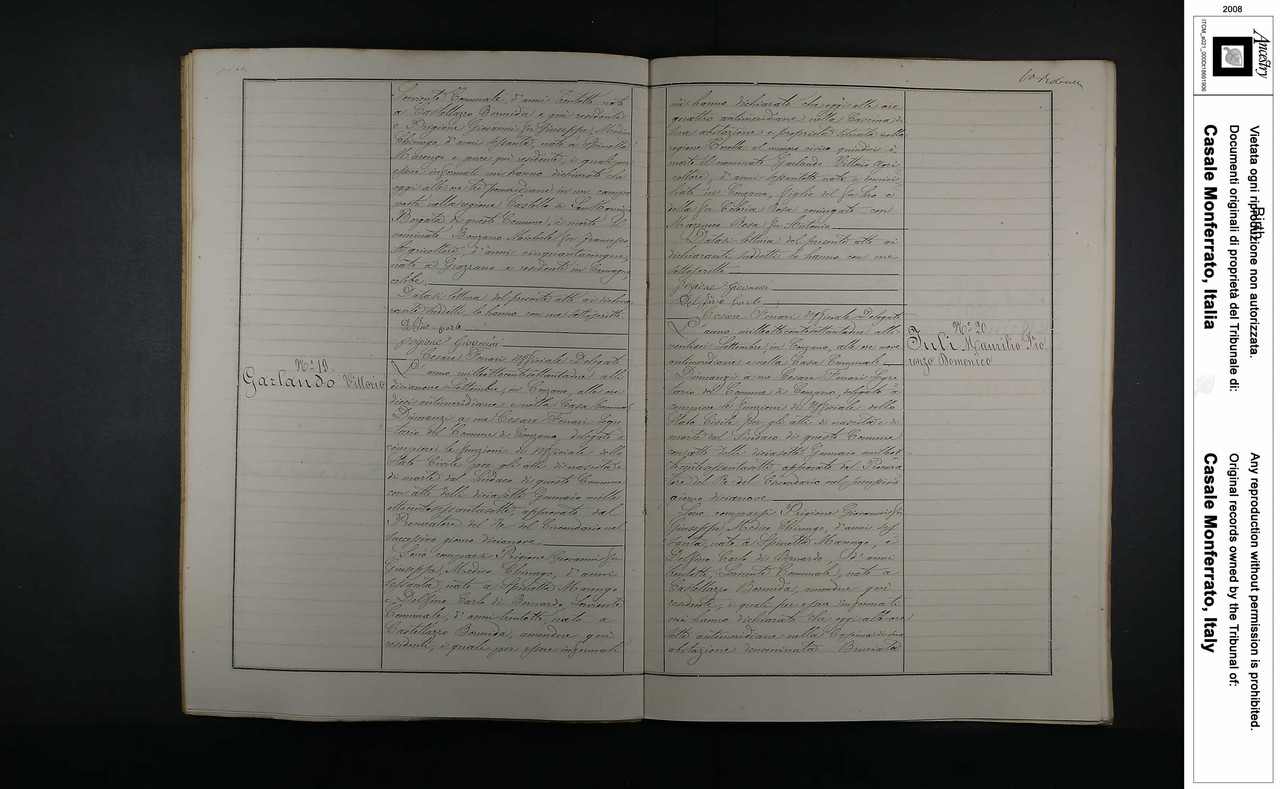 Serviente Comunale, d'anni trentotto, nato
a Castellazzo Bormida e qui residente
e Prigione Giovanni fu Giuseppe, Medico
Chirurgo, d'anni sessanta, nato a Spinetta
Marengo e pure qui residente, i quali per
essere informati mi hanno dichiarato che
oggi alle ore tre pomeridiane in un campo
posto nella regione Castello di
Borgata di questo Comune, è morto il
nominato Bonzano Michele fu Francesco
Agricoltore, d'anni cinquantacinque,
nato a Grazzano e residente in
celibe
Datasi lettura del presente atto ai dichia
ranti suddetti lo hanno con me sottoscritto
Delfino Carlo
Prigione Giovanni
Cesare Ferrari Uffiziale Delegato
No 19.
Garlando Vittorio
L'anno milleottocentottantadue alli
diciannove Settembre, in Conzano, alle ore
dieci antimeridiane e nella Casa Comunale
Dinanzi a me Cesare Ferrari Segre
tario del Comune di Conzano, delegato a
compiere le funzioni di Uffiziale dello
Stato Civile per gli atti di nascita e
di morte dal Sindaco di questo Comune
con atto delli diciasette Gennaio mille
ottocentosettantasette, approvato dal
Procuratore del Re del Circondario nel
successivo giorno diecinove
Sono comparsi Prigione Giovanni fu
Giuseppe, Medico Chirurgo, d'anni
sessanta, nato a Spinetta Marengo
e Delfino Carlo di Bernardo, Serviente
Comunale, d'anni trentotto, nato a
Castellazzo Bormida, amendue qui
residenti, i quali per essere informati
mi hanno dichiarato che oggi alle ore
quattro antimeridiane nella Cascina di
sua abitazione e proprietà situata nella
regione al numero civico quindici è
morto il nominato Garlando Vittorio Agri
coltore, d'anni nato e domici
liato in Conzano, figlio del fu e
della fu Celoria Rosa coniugato con
Mazzucco Rosa fu Antonio
Datasi lettura del presente atto ai
dichiaranti suddetti lo hanno con me
sottoscritto
Prigione Giovanni
Delfino Carlo
Cesare Ferrari Uffiziale Delegato
No 20
Juli Maurilio Fio
renzo Domenico
L'anno milleottocentottantadue alli
ventisei Settembre, in Conzano, alle ore nove
antimeridiane e nella Casa Comunale
Dinanzi a me Cesare Ferrari Segre
tario del Comune di Conzano, delegato a
compiere le funzioni di Uffiziale dello
Stato Civile per gli atti di nascita e di
morte dal Sindaco di questo Comune
con atto delli diciasette Gennaio milleot
tocentosettantasette, approvato dal Procura
tore del Re del Circondario nel successivo
giorno diecinove
Sono comparsi Prigione Giovanni fu
Giuseppe, Medico Chirurgo, d'anni ses
santa, nato a Spinetta Marengo, e
Delfino Carlo di Bernardo, d'anni
trentotto, Serviente Comunale, nato a
Castellazzo Bormida, amendue qui
residenti, i quali per essere informati
mi hanno dichiarato che oggi alle ore
otto antimeridiane nella Cascina di sua
abitazione denominata Bruciata
2008
Ancestry
Birth
Vietata ogni riproduzione non autorizzata.
Documenti originali di proprietà del Tribunale di:
Casale Monferrato, Italia
Any reproduction without permission is prohibited.
Original records owned by the Tribunal of:
Casale Monferrato, Italy